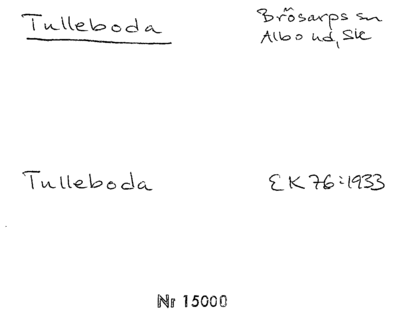 Tulleboda
Brösarps sn
Albo hd, Ske
Tulleboda
EK 76:1933
Nr 15000